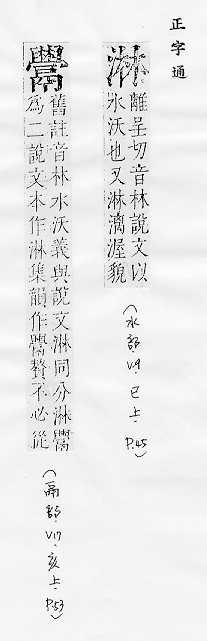 正字通
淋
離呈切音林說文以
水沃也又淋漓渥貌
（水部.V.9.巳上.P.45）
舊註音林水沃義與說文淋同分淋
為二說文本作淋集韻作贅不必從
（鬲部.V17.亥上.P.53）